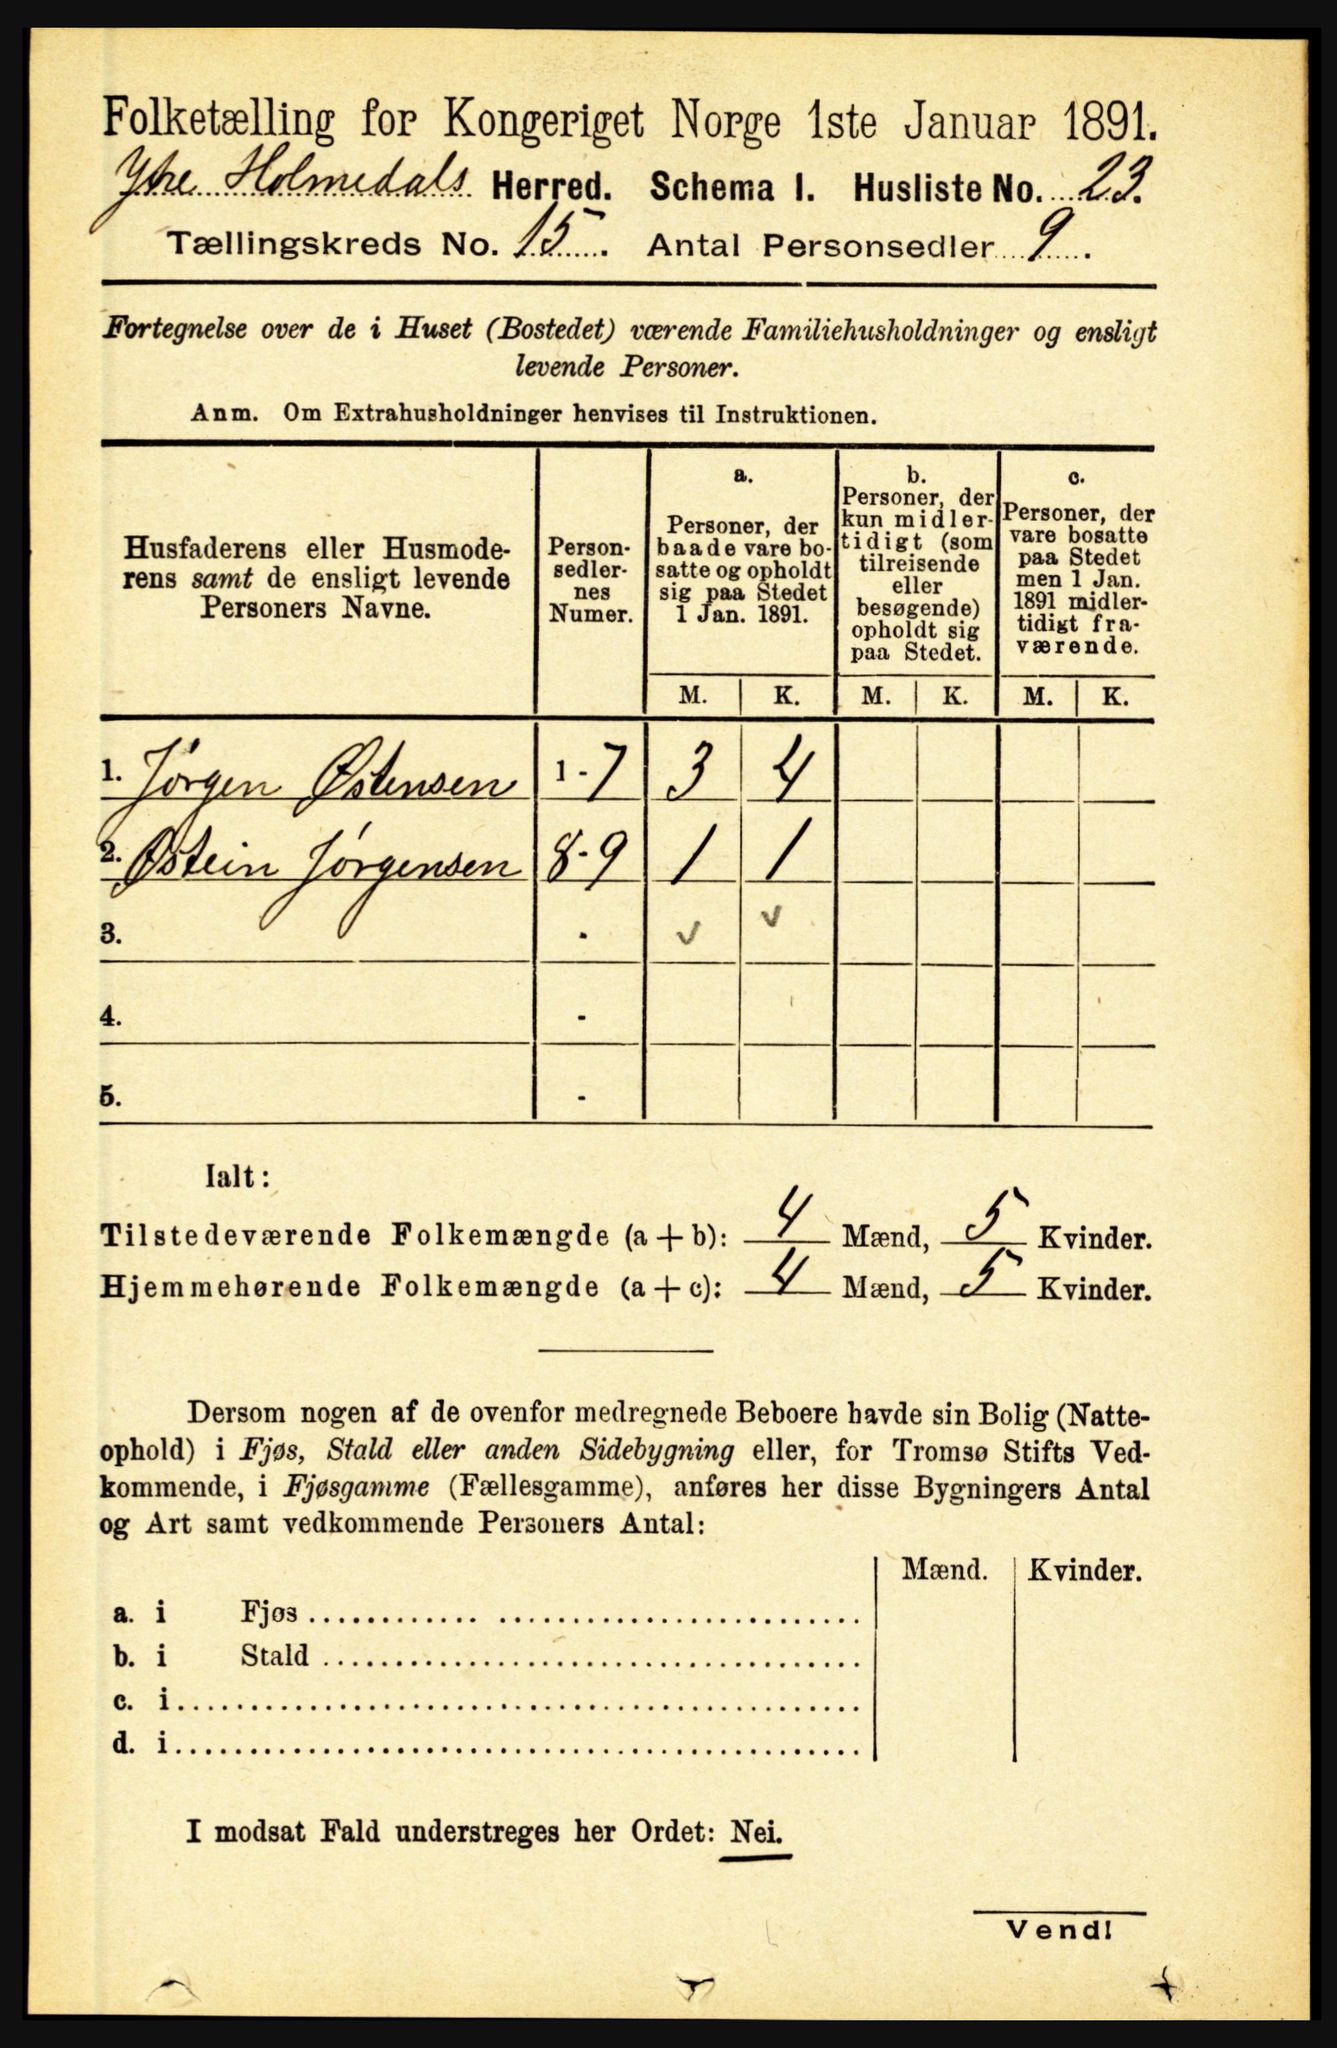 Folketælling for Kongeriget Norge 1ste Januar 1891.
Ytre Holmedals Herred. Schema I. Husliste No. 23.
Tællingskreds No. 15. Antal Personsedler 9.
Fortegnelse over de i Huset (Bostedet) værende Familiehusholdninger og ensligt
levende Personer.
Anm. Om Extrahusholdninger henvises til Instruktionen.
Husfaderens eller Husmode-
rens samt de ensligt levende
Personers Navne.
Person-
sedler-
nes
Numer.
a.
Personer, der
baade vare bo-
satte og opholdt
sig paa Stedet
1 Jan. 1891.
b.
Personer, der
kun midler-
tidigt (som
tilreisende
eller
besøgende)
opholdt sig
paa Stedet.
c.
Personer, der
vare bosatte
paa Stedet
men 1 Jan.
1891 midler-
tidigt fra-
værende.
M. K. M. K. M. K.
1. Jørgen Østensen 1 - 7 3 4
2. Østein Jørgensen 8 - 9 1 1
3. - v v
4. -
5. -
Ialt:
Tilstedeværende Folkemængde (a + b): 4 Mænd, 5 Kvinder.
Hjemmehørende Folkemængde (a + c): 4 Mænd, 5 Kvinder.
Dersom nogen af de ovenfor medregnede Beboere havde sin Bolig (Natte-
ophold) i Fjøs, Stald eller anden Sidebygning eller, for Tromsø Stifts Ved-
kommende, i Fjøsgamme (Fællesgamme), anføres her disse Bygningers Antal
og Art samt vedkommende Personers Antal:
Mænd. Kvinder.
a. i Fjøs
b. i Stald
c. i
d. i
I modsat Fald understreges her Ordet: Nei.
Vend!